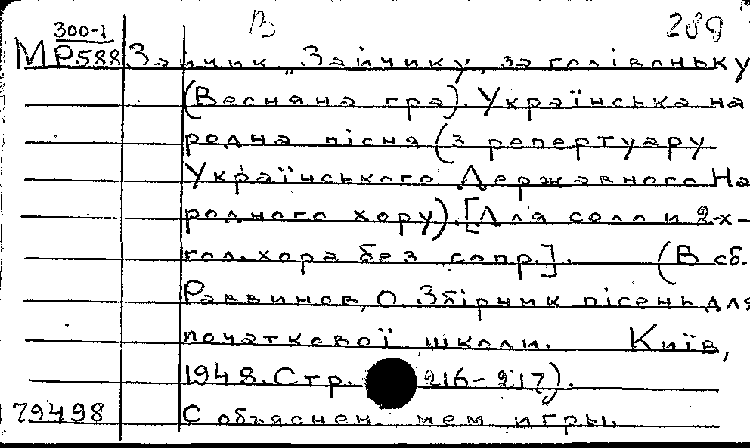 300-1 В 289
МР588 Зайчик „Зайчику, за голівоньку
(Весняна гра). Українська на
родна пісня (з репертуару
Українського Державного На
родного хору). [Для соло и 2-х-
гол. хора без сопр.]. (В сб.
Раввинов, О. Збірник пісень для
початкової школи. Київ,
1948. Стр. 216-217).
79498 С объяснен. игры.